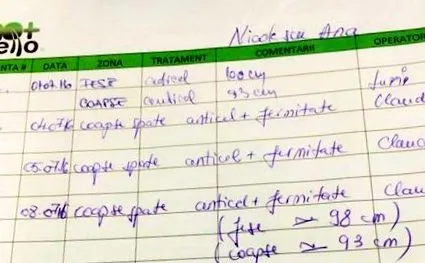 ello
Nicolescu Ana
NTA # DATA ZONA TRATAMENT COMENTARII OPERATOR
01.07.16 FESE anticel 100 cm
COAPSE anticel 93 cm Claud
coapse spate anticel + fermitate Claud
05.07.16 coapse spate anticel + fermitate Claud
08.07.16 coapse spate anticel + fermitate Clau
(fese ≃ 98 cm)
(coapse ≃ 93 cm)